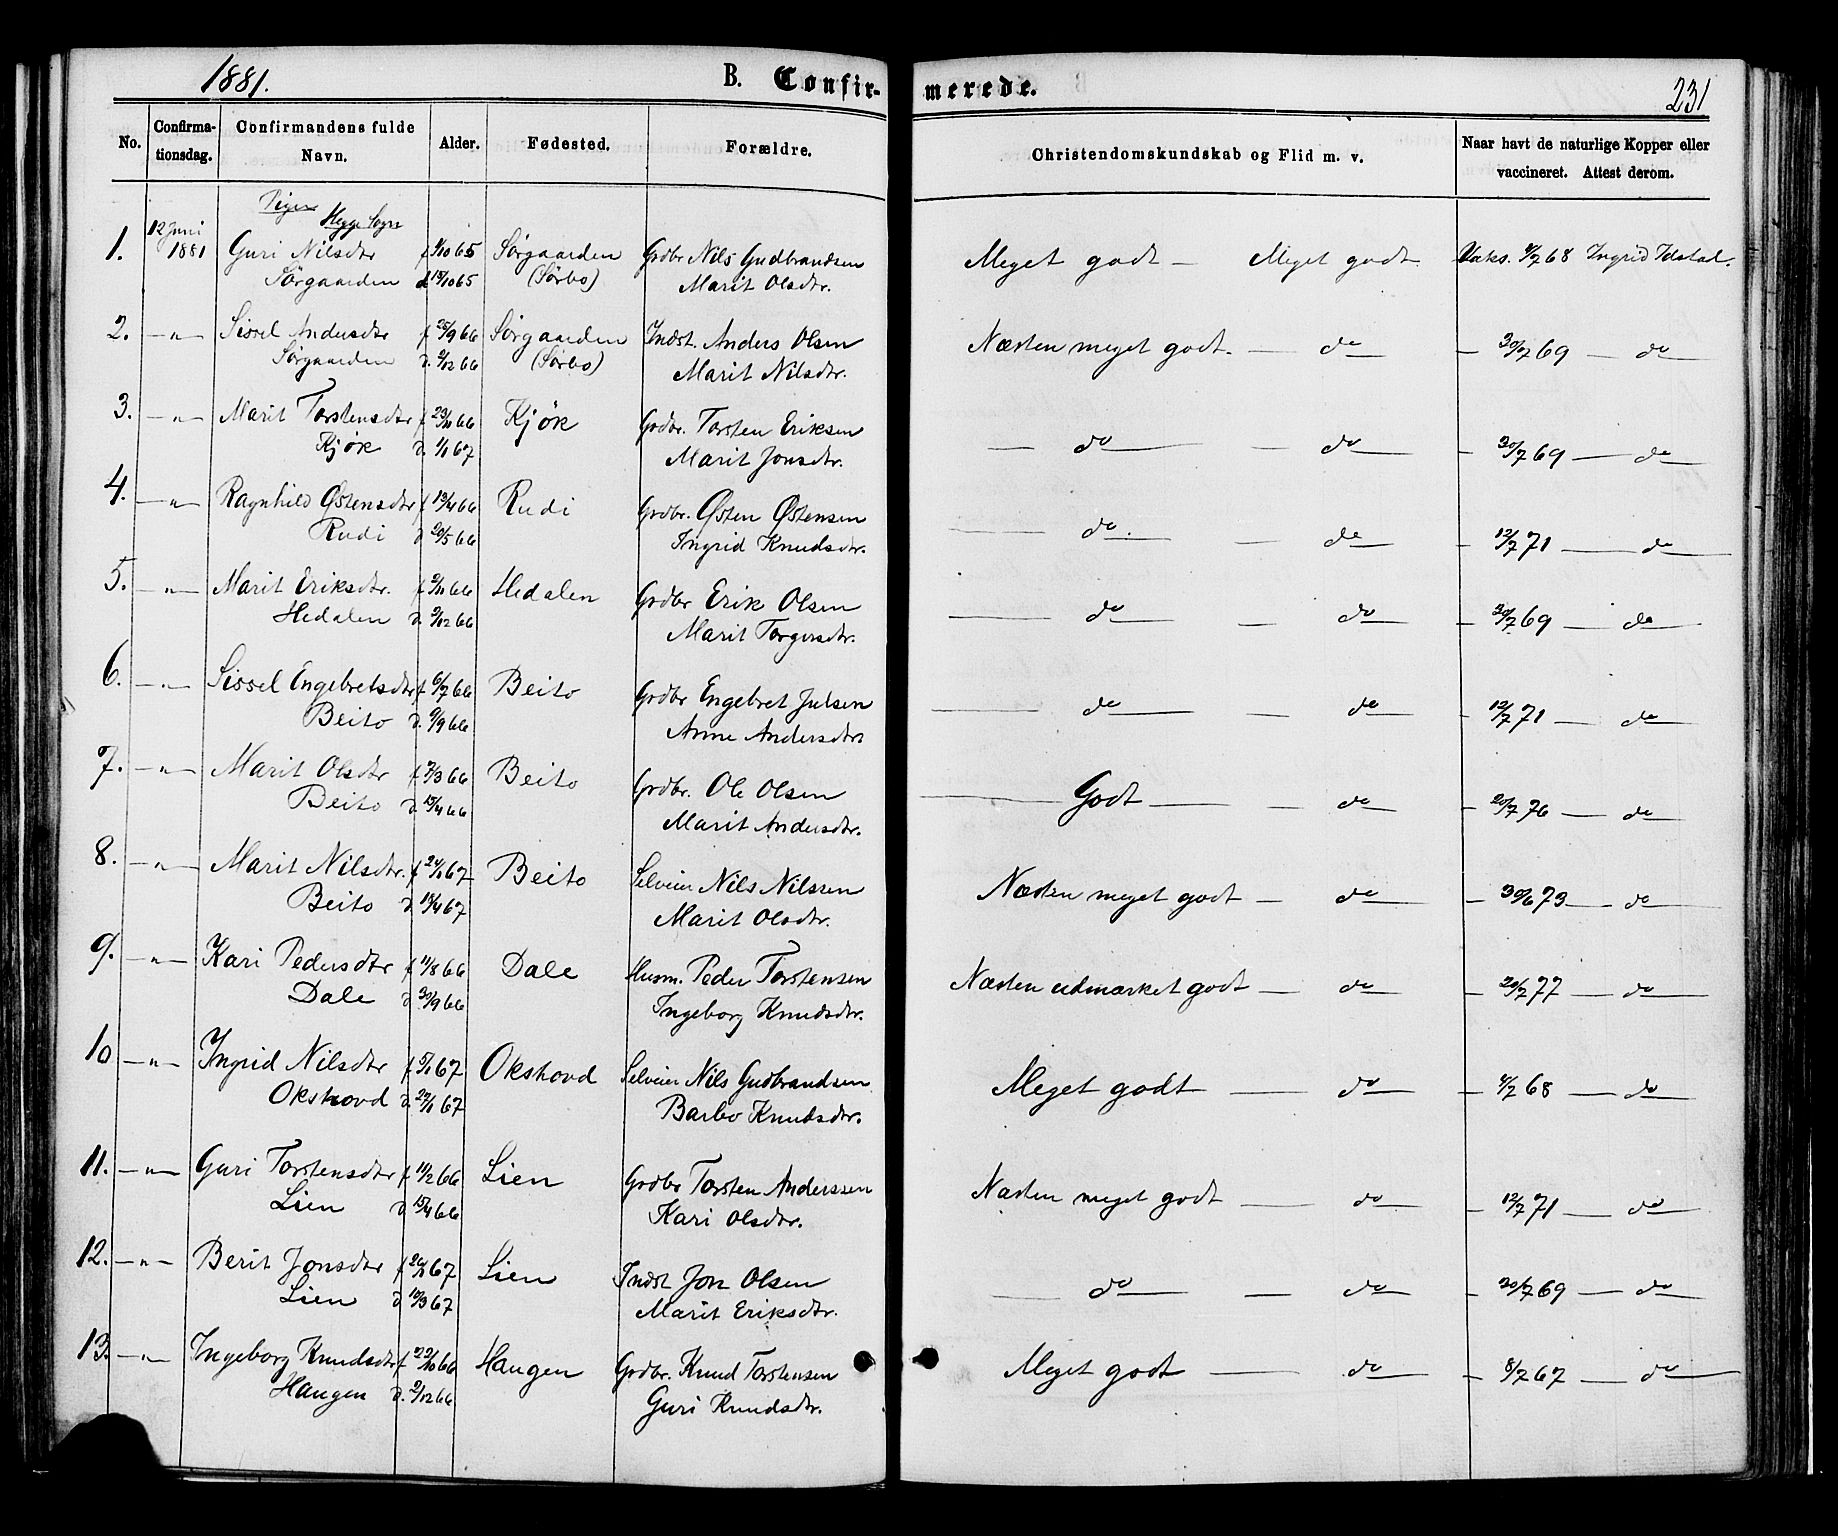 1881.
B. Confirmerede.
231
No. Confirmationsdag. Confirmandens fulde Navn. Alder. Fødested. Forældre. Christendomskundskab og Flid m. v. Naar havt de naturlige Kopper eller vaccineret. Attest derom.
Piger
Hegge Sogn
1. 12 Juni 1881 Guri Nilsdtr f 1/10 65 Sørgaarden Grdbr Nils Gudbrandsen Meget godt — Meget godt Vaks. 4/7 68 Ingrid Idstad.
Sørgaarden d 15/10 65 (Sørbo) Marit Olsdtr.
2. —"— Sissel Andersdtr f 25/9 66 Sørgaarden Indst. Anders Olsen Næsten meget godt. — do — 30/7 69 — do
Sørgaarden d. 9/12 66 (Sørbo) Marit Nilsdtr.
3. —"— Marit Torstensdtr f 23/10 66 Kjøk Grdbr. Torsten Eriksen — do — do — 30/7 69 — do
Kjøk d. 1/1 67 Marit Jonsdtr.
4. —"— Ragnhild Østensdtr f 19/4 66 Rudi Grdbr. Østen Østensen — do. — do — 12/7 71 — do
Rudi d 20/5 66 Ingrid Knudsdtr.
5. —"— Marit Eriksdtr. f 9/11 66 Hedalen Grdbr Erik Olsen — do — do — 30/7 69 — do
Hedalen d. 9/12 66 Marit Torgersdtr.
6. —"— Sissel Engebretsdtr f 6/7 66 Beito Grdbr Engebret Julsen — do — do — 12/7 71 — do
Beito d. 9/9 66 Anne Andersdtr
7. —"— Marit Olsdtr f 7/3 66 Beito Grdbr. Ole Olsen — Godt — do — 20/7 76 — do
Beito d. 15/4 66 Marit Andersdtr.
8. —"— Marit Nilsdtr. f 24/1 67 Beito Selveier Nils Nilssen Næsten meget godt — do — 30/6 73 — do
Beito d. 18/4 67 Marit Olsdtr.
9. —"— Kari Pedersdtr f 11/8 66 Dale Husm. Peder Torstensen Næsten udmærket godt — do — 20/7 77 — do
Dale d 30/9 66 Ingeborg Knudsdtr.
10 —"— Ingrid Nilsdtr f 5/1 67 Okshovd Selveier Nils Gudbrandsen Meget godt — do — 4/7 68 — do
Okshovd d. 29/1 67 Barbo Knudsdtr.
11. —"— Guri Torstensdtr f 11/2 66 Lien Grdbr Torsten Anderssen Næsten meget godt — do — 12/7 71 — do
Lien d 15/4 66 Kari Olsdtr.
12. —"— Berit Jonsdtr f 26/1 67 Lien Indst Jon Olsen — do — do — 30/7 69 — do
Lien d 10/3 67 Marit Eriksdtr.
13. —"— Ingeborg Knudsdtr f 22/10 66 Haugen Grdbr. Knud Torstensen Meget godt — do — 8/7 67 — do
Haugen d. 2/12 66 Guri Knudsdtr.